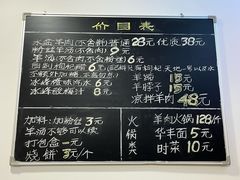 价目表
水盆羊肉(不含饼)普通28元 优质38元
粉丝羊汤(不含饼)9元
羊汤(不含肉不含粉丝)6元
羊蹄15元
羊脖子15元
凉拌羊肉48元
冰峰橙味汽水6元
冰峰酸梅汁8元
加料:加粉丝3元
羊汤不够可以续
打包盒一元
烧饼3元/个
火锅类
羊肉火锅128/个
华丰面5元
时菜10元